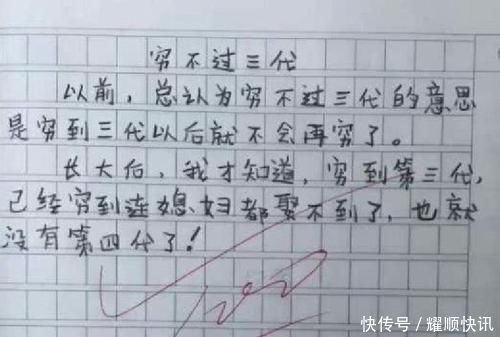 穷不过三代
以前，总认为穷不过三代的意思
是穷到三代以后就不会再穷了。
长大后，我才知道，穷到第三代，
已经穷到连媳妇都娶不到了，也就
没有第四代了！
100
快传号／耀顺快讯